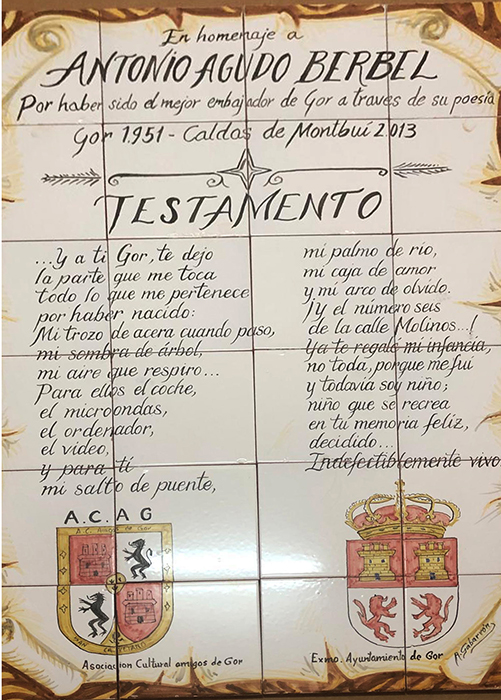 En homenaje a
ANTONIO AGUDO BERBEL
Por haber sido el mejor embajador de Gor a traves de su poesía
Gor 1.951 - Caldas de Montbuí 2013
TESTAMENTO
...Y a ti Gor, te dejo
la parte que me toca
todo lo que me pertenece
por haber nacido:
Mi trozo de acera cuando paso,
mi sombra de árbol,
mi aire que respiro...
Para ellos el coche,
el microondas,
el ordenador,
el video,
y para ti
mi salto de puente,
mi palmo de río,
mi caja de amor
y mi arco de olvido.
¡y el número seis
de la calle Molinos...!
Ya te regaló mi infancia,
no toda, porque me fui
y todavia soy niño;
niño que se recrea
en tu memoria feliz,
decidido...
Indefectiblemente vivo
A.C.A G
Asociacion Cultural amigos de Gor
Exmo. Ayuntamiento de Gor